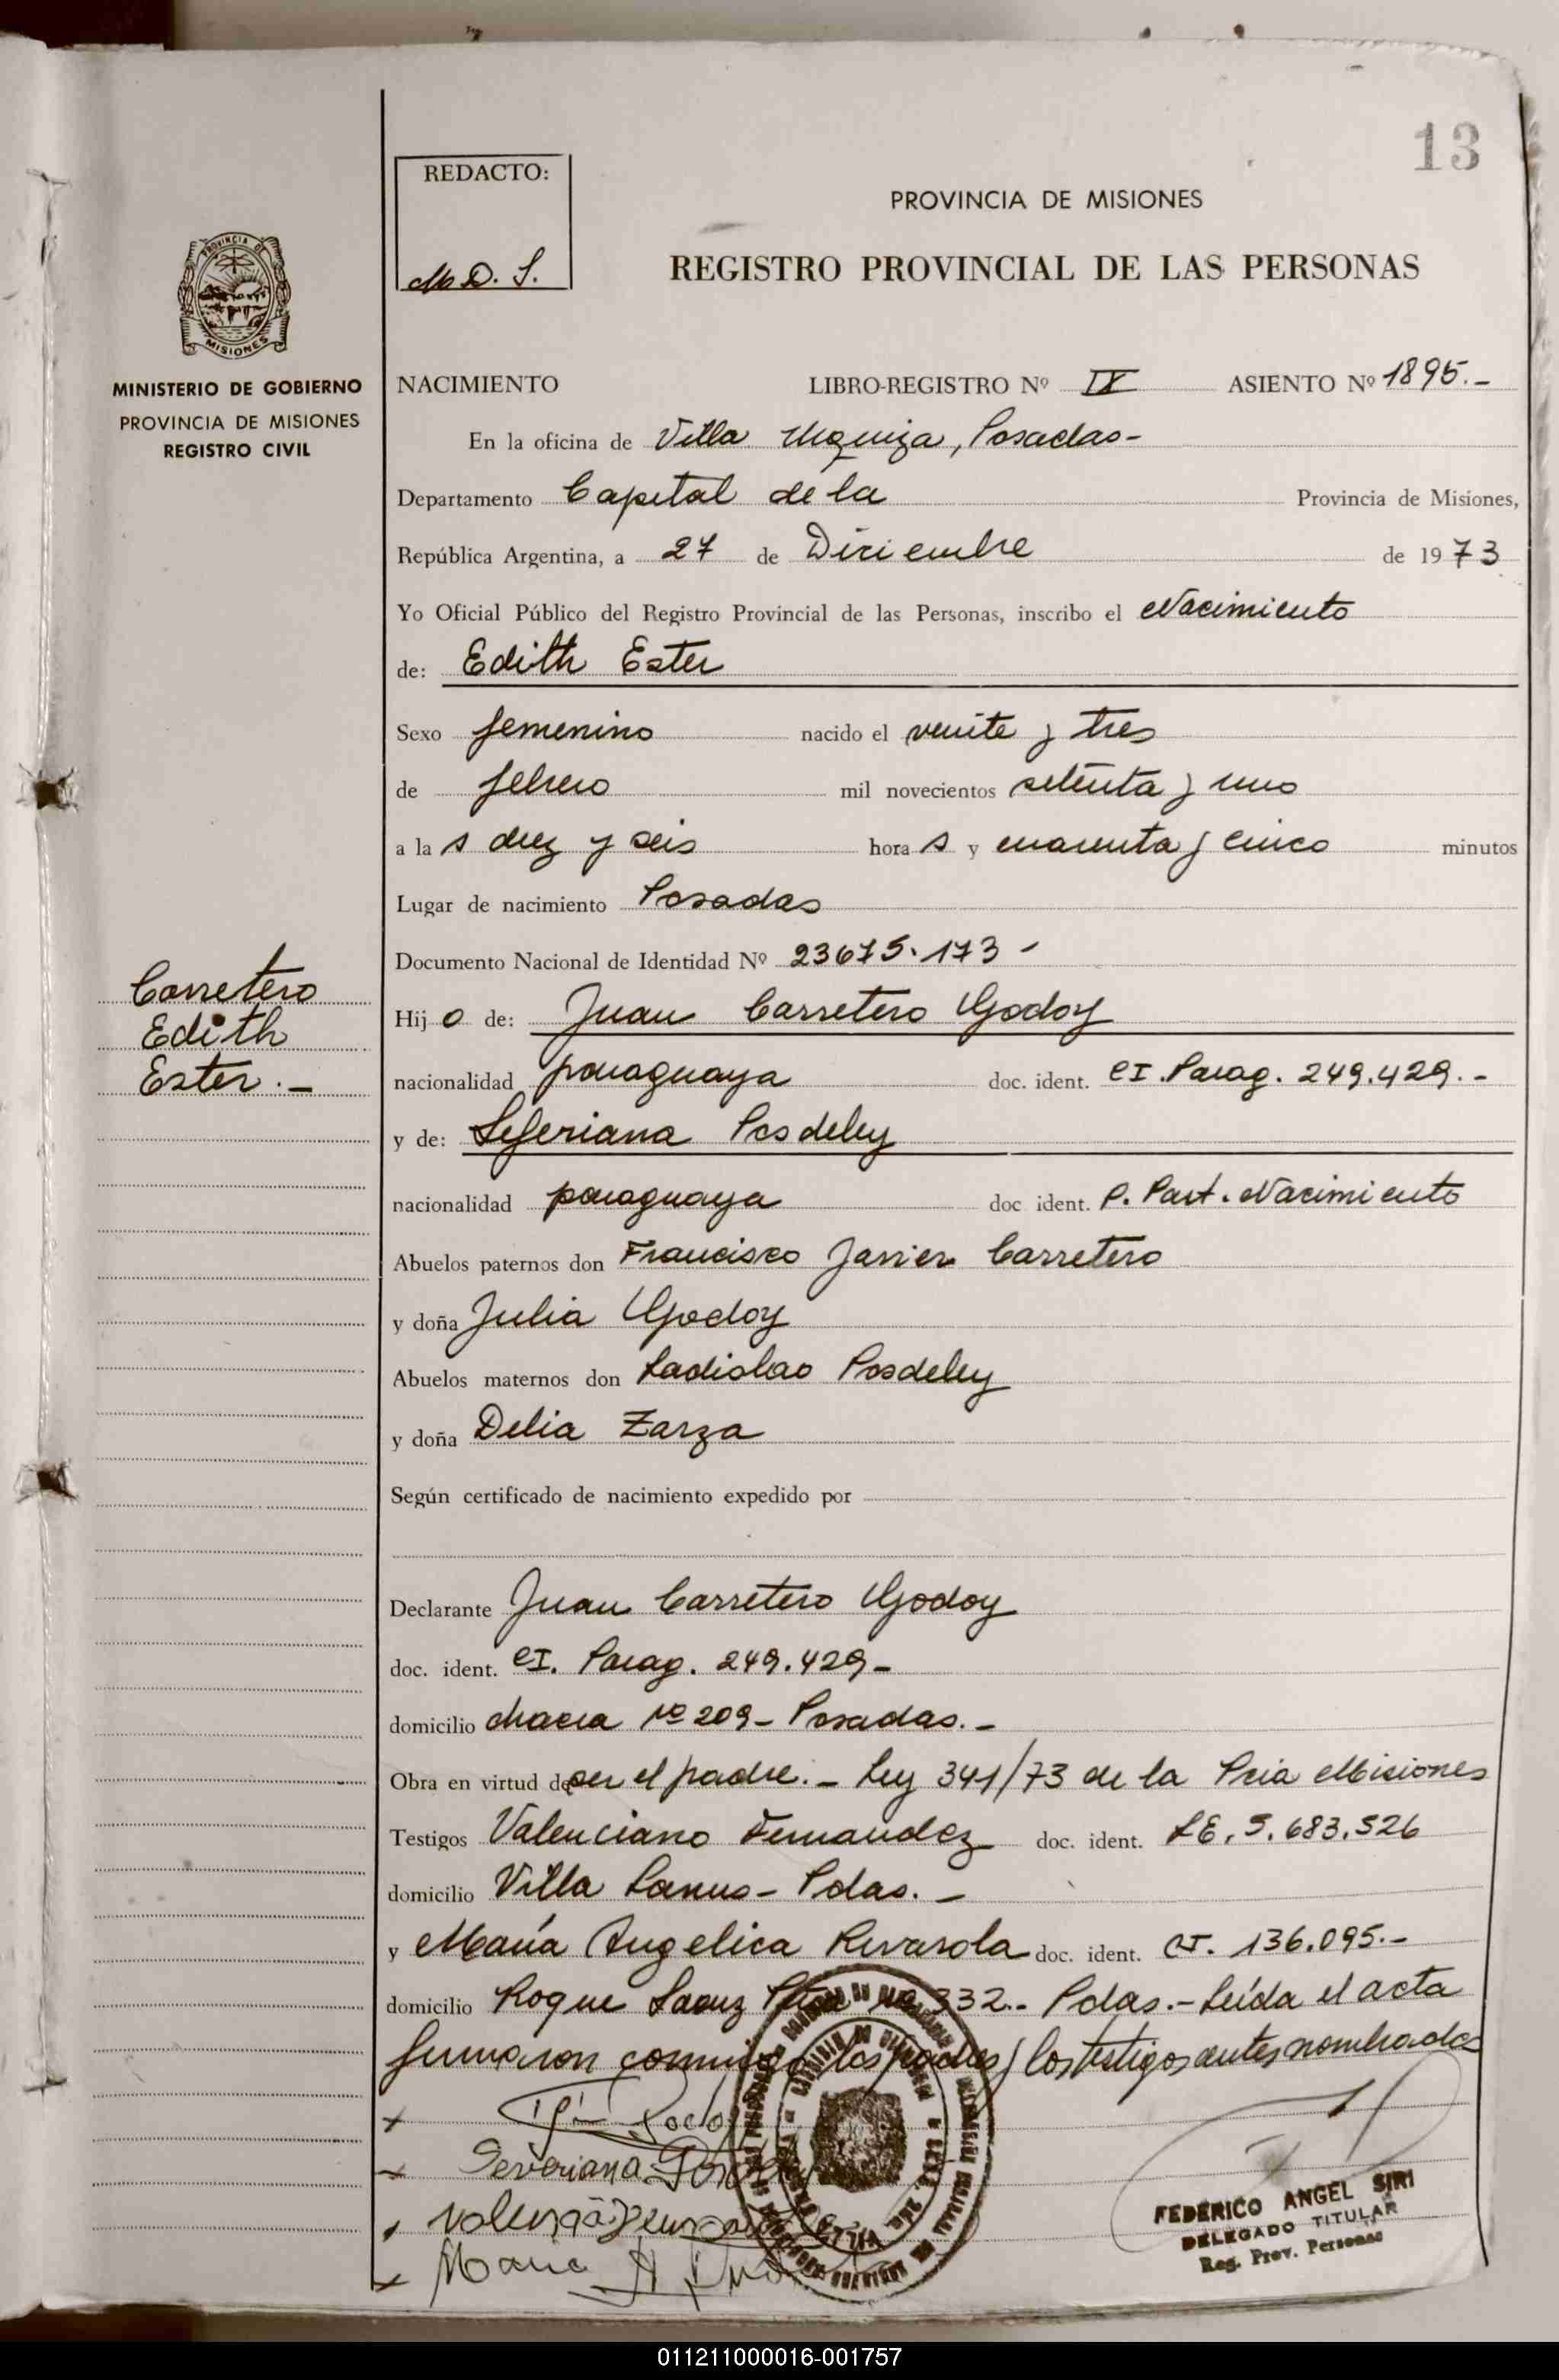 13
REDACTO:
M. D. S.
PROVINCIA DE MISIONES
REGISTRO PROVINCIAL DE LAS PERSONAS
PROVINCIA DE
MISIONES
MINISTERIO DE GOBIERNO
PROVINCIA DE MISIONES
REGISTRO CIVIL
NACIMIENTO LIBRO-REGISTRO Nº IX ASIENTO Nº 1895.-
En la oficina de Villa Urquiza, Posadas-
Departamento Capital de la Provincia de Misiones,
República Argentina, a 27 de Diciembre de 1973
Yo Oficial Público del Registro Provincial de las Personas, inscribo el Nacimiento
de: Edith Ester
Sexo femenino nacido el veinte y tres
de febrero mil novecientos setenta y uno
a las diez y seis horas y cuarenta y cinco minutos
Lugar de nacimiento Posadas
Documento Nacional de Identidad Nº 23675.173-
Carretero
Edith
Ester.-
Hijo de: Juan Carretero Godoy
nacionalidad paraguaya doc. ident. CI. Parag. 249.429.-
y de: Seferiana Posdeley
nacionalidad paraguaya doc ident. P. Part. Nacimiento
Abuelos paternos don Francisco Javier Carretero
y doña Julia Godoy
Abuelos maternos don Ladislao Posdeley
y doña Delia Zarza
Según certificado de nacimiento expedido por
Declarante Juan Carretero Godoy
doc. ident. CI. Parag. 249.429-
domicilio chacra Nº 209- Posadas.-
Obra en virtud de ser el padre.- Ley 341/73 de la Pcia Misiones
Testigos Valenciano Fernandez doc. ident. LE. 5.683.526
domicilio Villa Lanus- Pdas.-
y María Angelica Rivarola doc. ident. CI. 136.095.-
domicilio Roque Saenz Peña Nº 332.- Pdas.- Leída el acta
firmaron conmigo los padres y los testigos antes nombrados
Severiana
Maria A
FEDERICO ANGEL SIRI
DELEGADO TITULAR
Reg. Prov. Personas
011211000016-001757